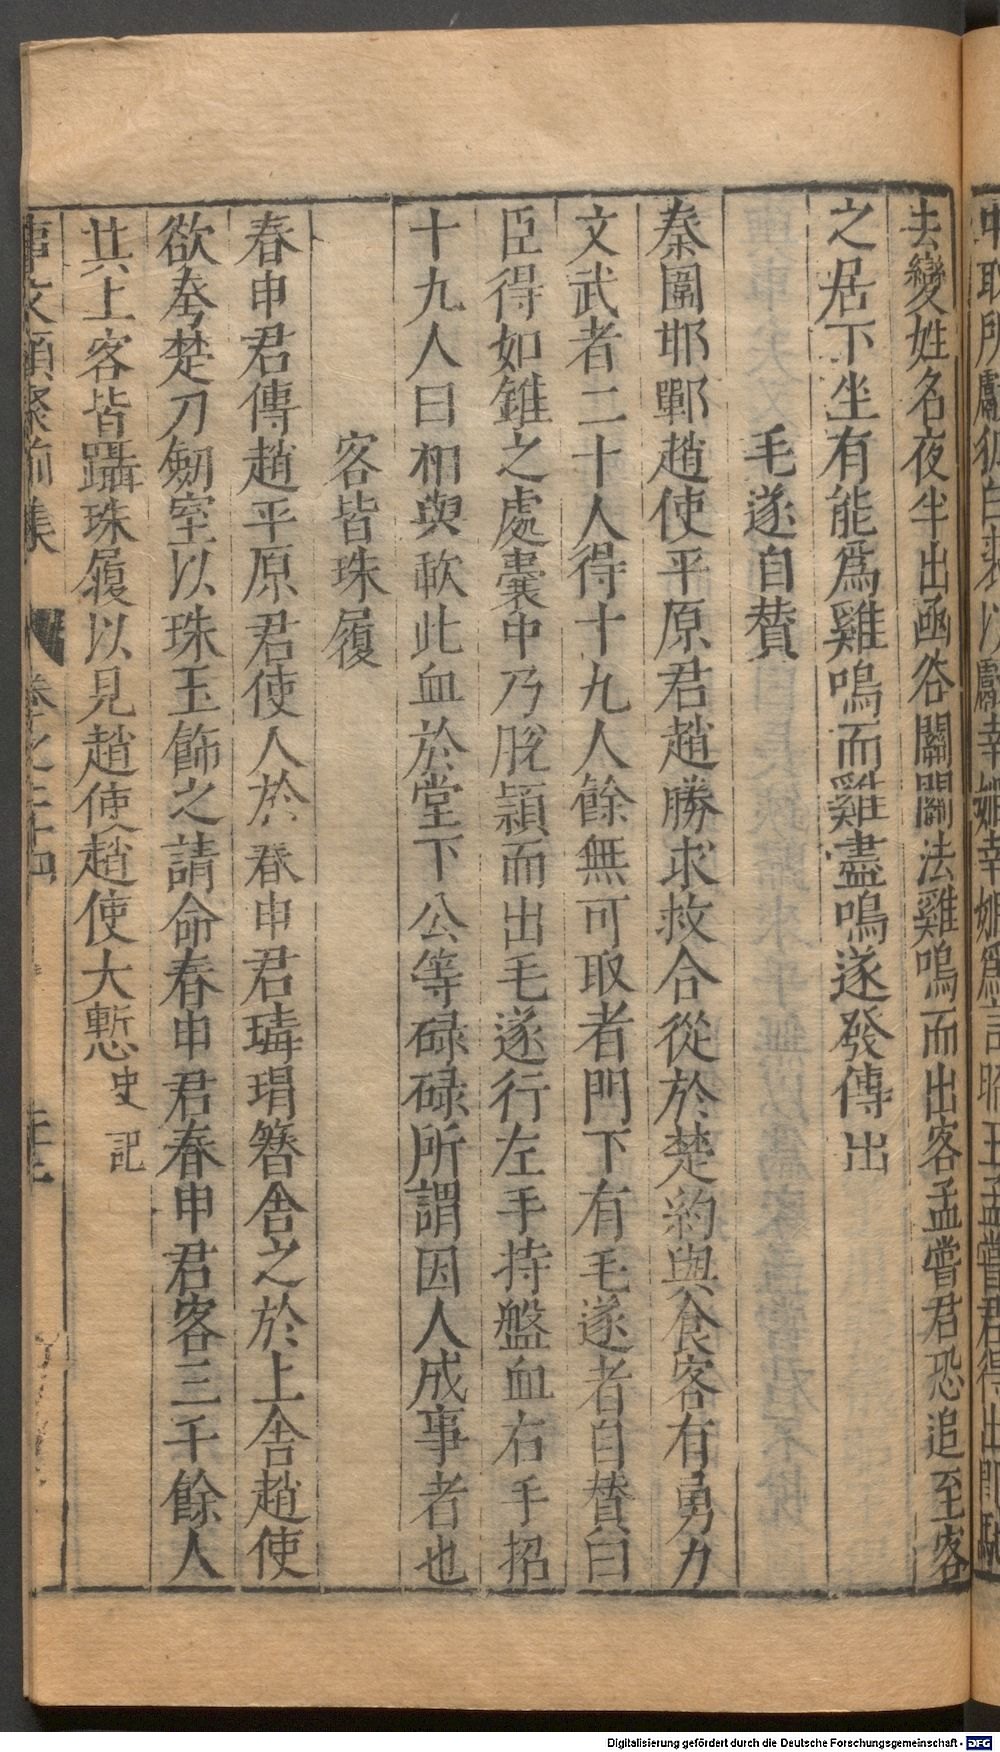 中取所獻狐白裘以獻幸姬幸姬爲言昭王孟嘗君得出即馳
去變姓名夜半出函谷關關法雞鳴而出客孟嘗君恐追至客
之居下坐有能爲雞鳴而雞盡鳴遂發傳出
毛遂自賛
秦圍邯鄲趙使平原君趙勝求救合從於楚約與食客有勇力
文武者二十人得十九人餘無可取者門下有毛遂者自賛曰
臣得如錐之處囊中乃脱潁而出毛遂行左手持盤血右手招
十九人曰相與歃此血於堂下公等碌碌所謂因人成事者也
客皆珠履
春申君傳趙平原君使人於春申君瑇瑁簪舍之於上舍趙使
欲夸楚刀劒室以珠玉飾之請命春申君春申君客三千餘人
其上客皆躡珠履以見趙使趙使大慙史記
事文類聚前集 卷之三十四
Digitalisierung gefördert durch die Deutsche Forschungsgemeinschaft - DFG